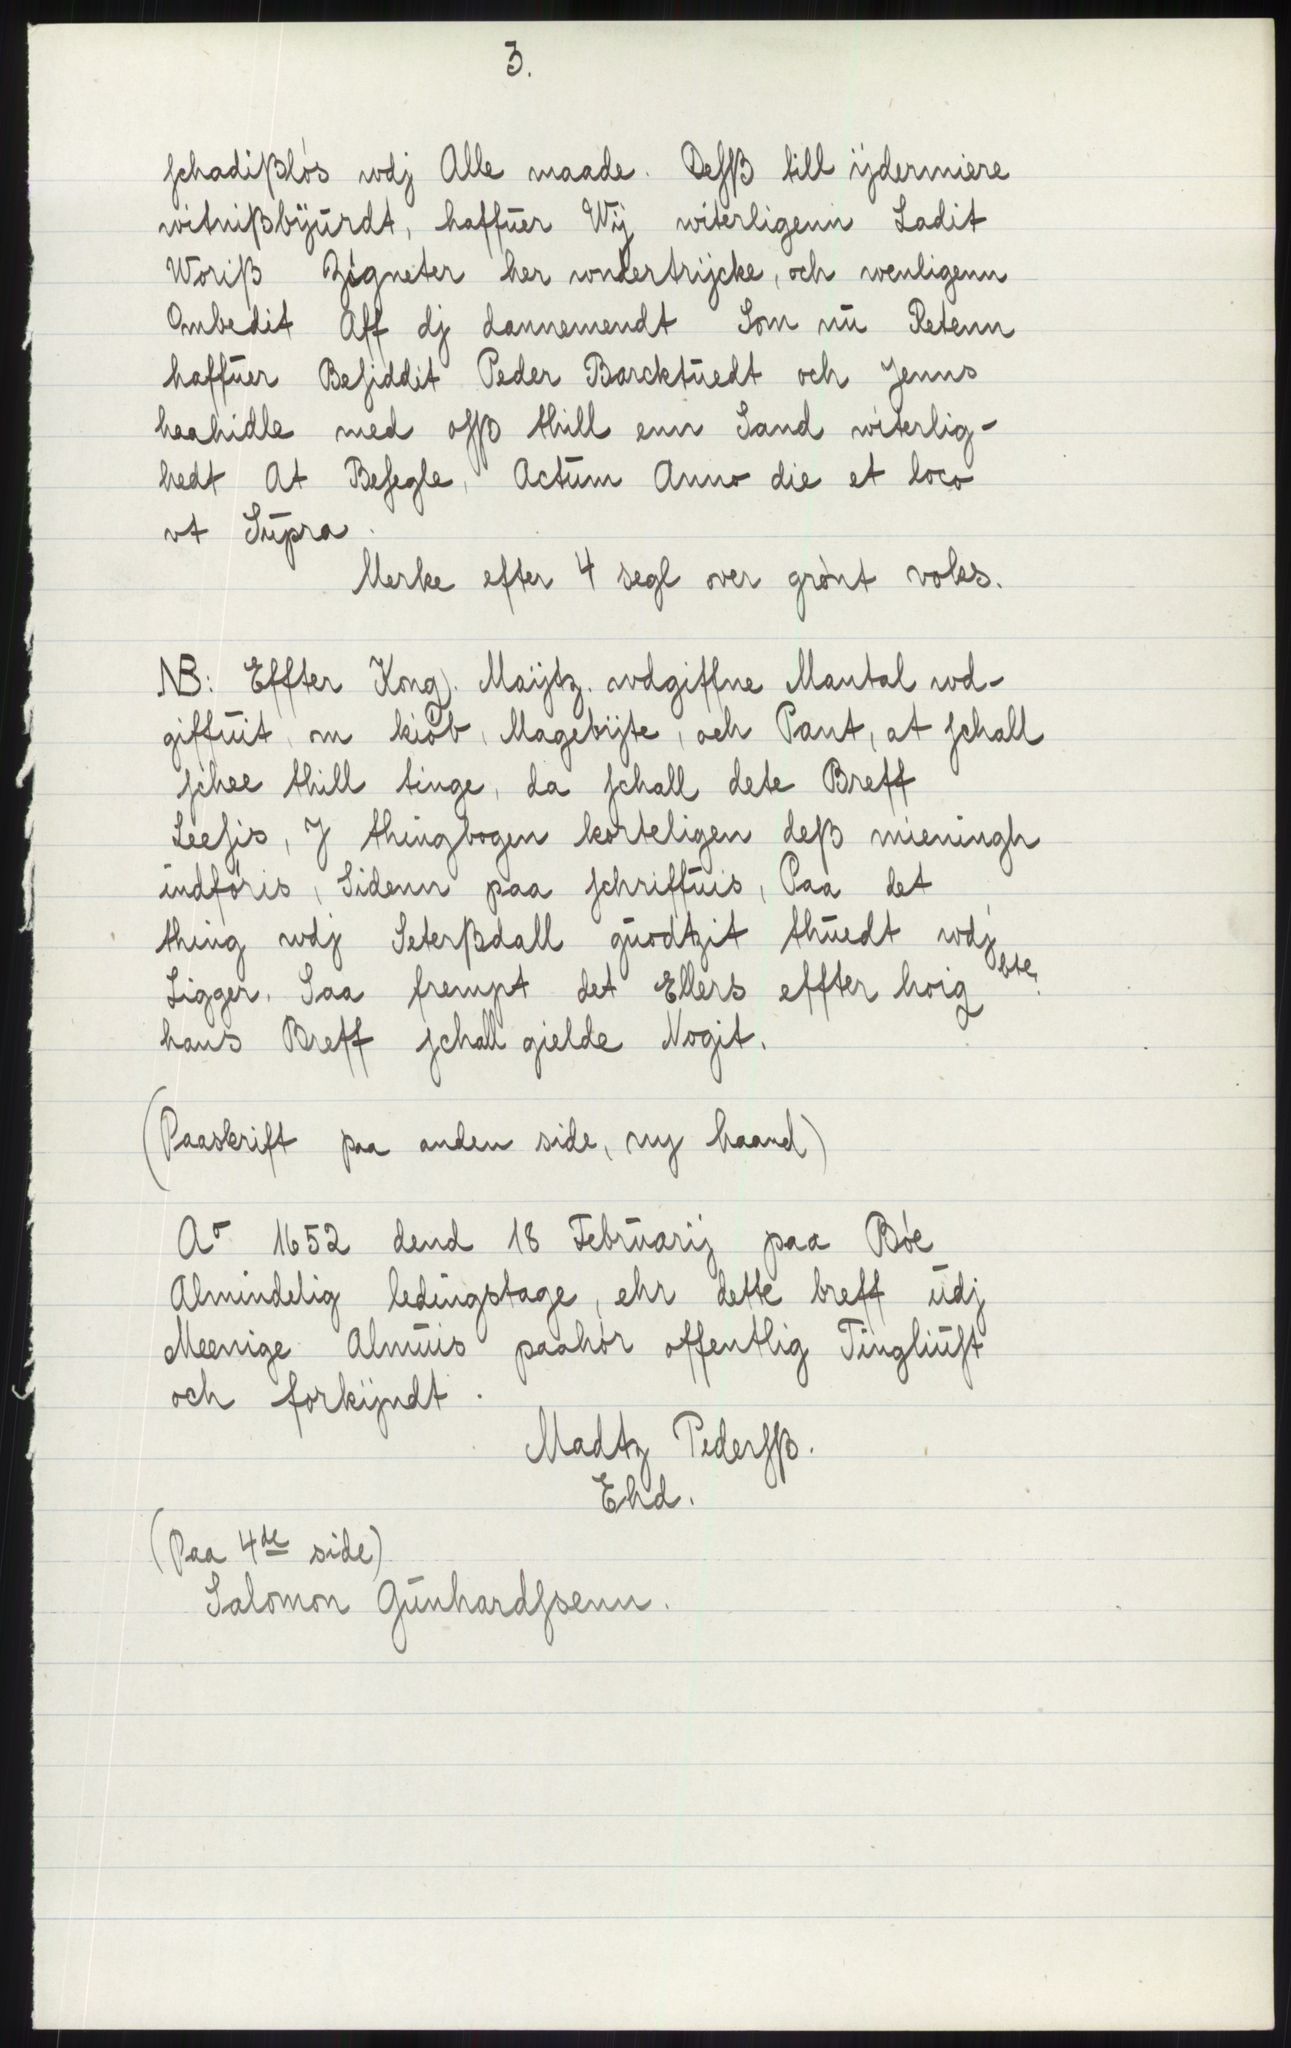 3.
schadißløs wdj Alle maade. Desß till ÿdermiere
witnißbÿurdt, haffuer Wij witerligenn Ladit
Woriß Zigneter her wndertrÿcke, och wenligenn
Ombedit Aff dj dannemendt Som nu Retenn
haffuer Besiddit Peder Barcktuedt och Jenns
haahidle med osß thill enn Sand witerlig-
hedt At Besegle, Actum Anno die et loco
vt Supra.
Merke efter 4 segl over grønt voks.
NB: Effter Kong. Maÿtz. wdgiffne Mantal wd-
giffuit, om kiøb, Magebÿte, och Pant, at schall
schee thill tinge, da schall dete Breff
Leesis, J thingbogen korteligen deß mieningh
indføris, Sidenn paa schriffuis, Paa det
thing wdj Seterßdall guodtzit thuedt wdj
Ligger. Saa frempt det Ellers effter høig bte.
hans Breff schall gielde Nogit.
(Paaskrift paa anden side, ny haand)
Ao 1652 dend 18 Februarij paa Bøe
Almindelig ledingstage, ehr dette breff udj
Meenige Almuis paahør offentlig Tingliust
och forkÿndt.
Madtz Pedersß.
Ehd.
(Paa 4de side)
Salomon Gunhardssenn.